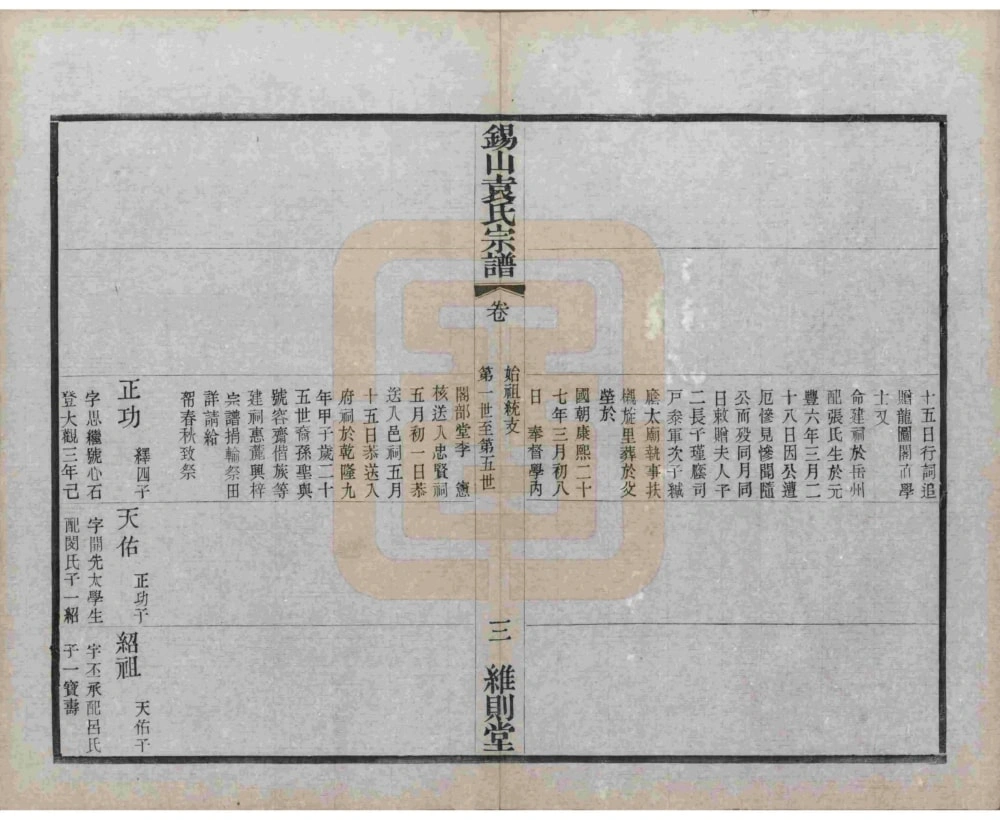 十五日行詞追
贈龍圖閣直學
士又
命建祠於岳州
配張氏生於元
豐六年三月二
十八日因公遭
厄慘見慘聞隨
公而歿同月同
日敕贈夫人子
二長子瑾廕司
戸叅軍次子
廕太廟執事扶
櫬旋里葬於父
塋於
國朝康熙二十
七年三月初八
日 奉督學内
錫山袁氏宗譜
卷
始祖統支
第一世至第五世
三
維則堂
閣部堂李 憲
核送入忠賢祠
五月初一日恭
送入邑祠五月
十五日恭送入
府祠於乾隆九
年甲子歲二十
五世裔孫聖與
號容齋偕族等
建祠惠麓興梓
宗譜捐輸祭田
詳請給
帑春秋致祭
正功 釋四子
字思繼號心石
登大觀三年己
天佑 正功子
字開先太學生
配閔氏子一紹
紹祖 天佑子
字丕承配呂氏
子一寶壽